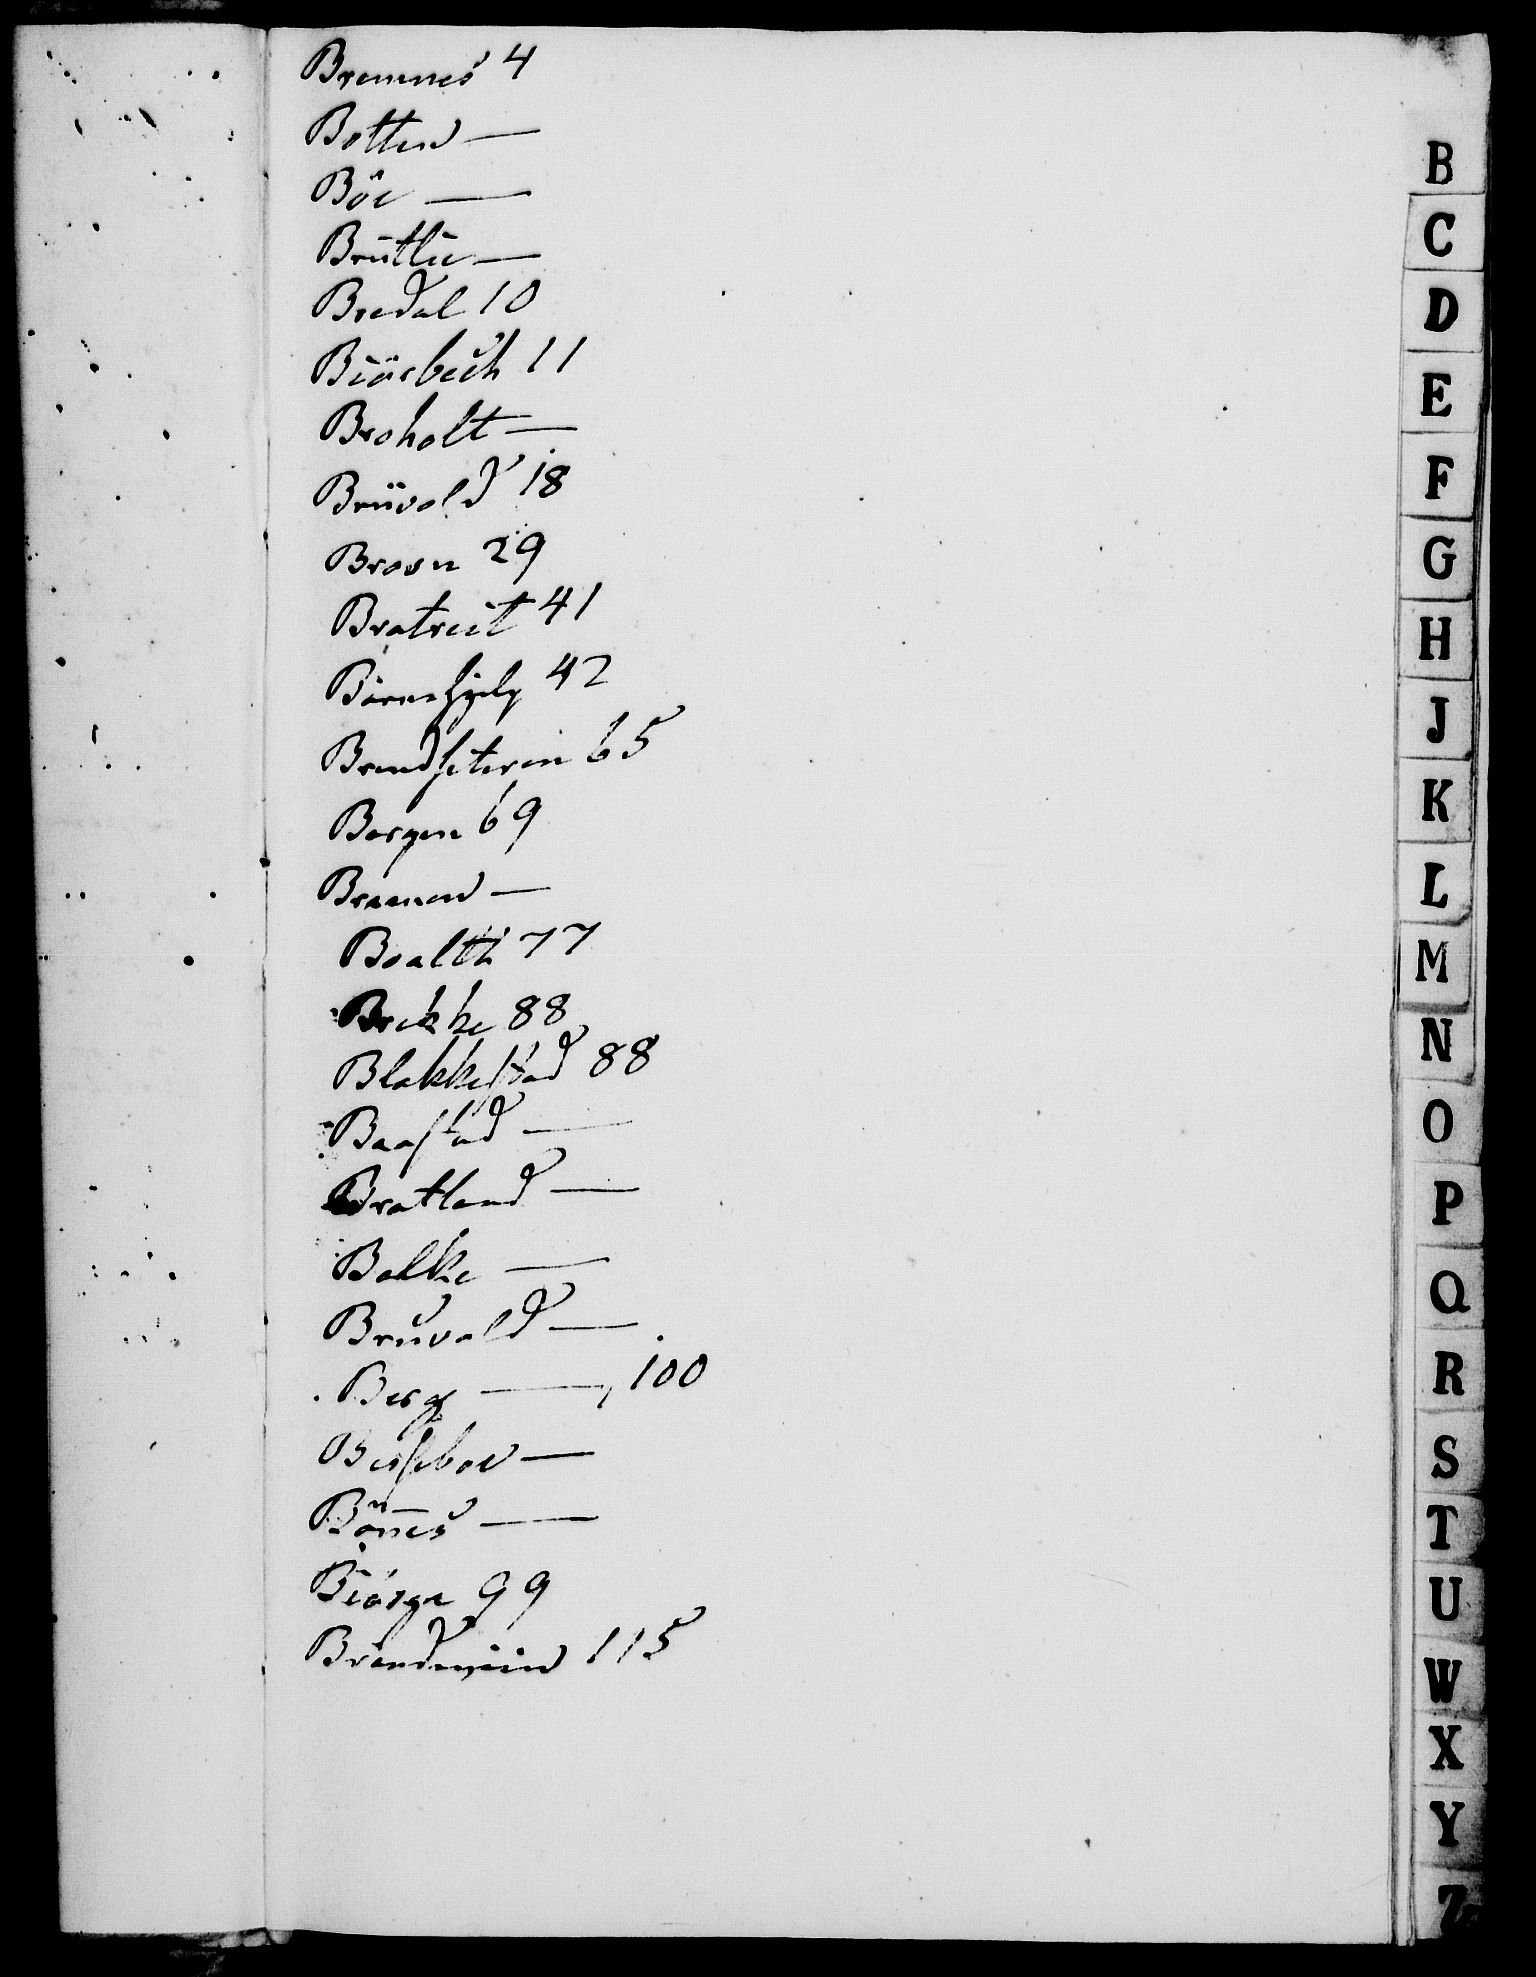 Bremnes 4
Botten —
Böe —
Brütlie —
Bredal 10
Biörbech 11
Broholt —
Brüvold 18
Brosn 29
Bratreit 41
Börnehjelp 42
Brendseteren 65
Bergen 69
Braanen —
Boaltti 77
Brekke 88
Blakkestad 88
Baastad —
Bratland —
Balke —
Bruvald —
Berg — 100
Besseboe —
Bönes —
Biörge 99
Brandeviin 115
B
C
D
E
F
G
H
J
K
L
M
N
O
P
Q
R
S
T
U
W
X
Y
Z